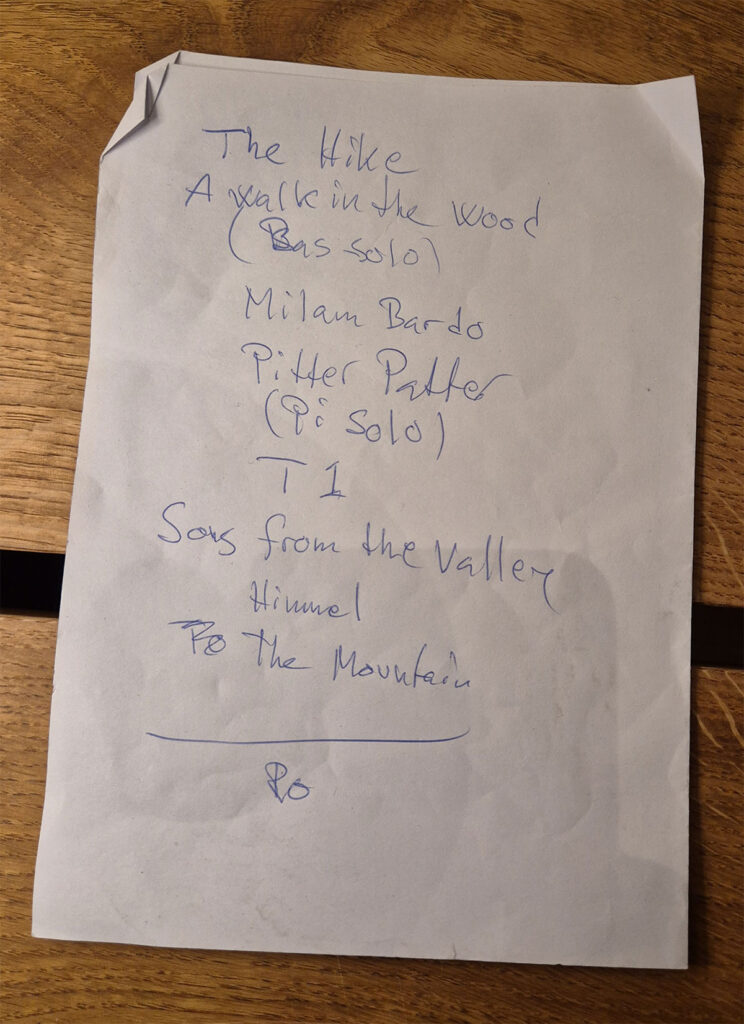 The Hike
A walk in the wood
(Bas solo)
Milam Bardo
Pitter Patter
(Pi solo)
T 1
Song from the Valley
Himmel
To The Mountain
Po